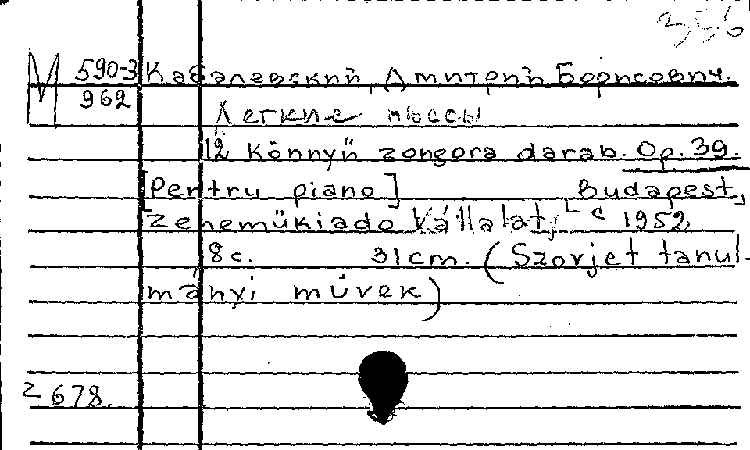 356
М 590-3 Кабалевский, Дмитрий Борисович.
962 Легкие пьесы
12 Könnyü zongora darab. Op. 39.
[Pentru piano] Budapest,
Zeneműkiado Vállalat, [c 1952,
8 c. 31 cm. (Szovjet tanul-
mányi művek)
2678.